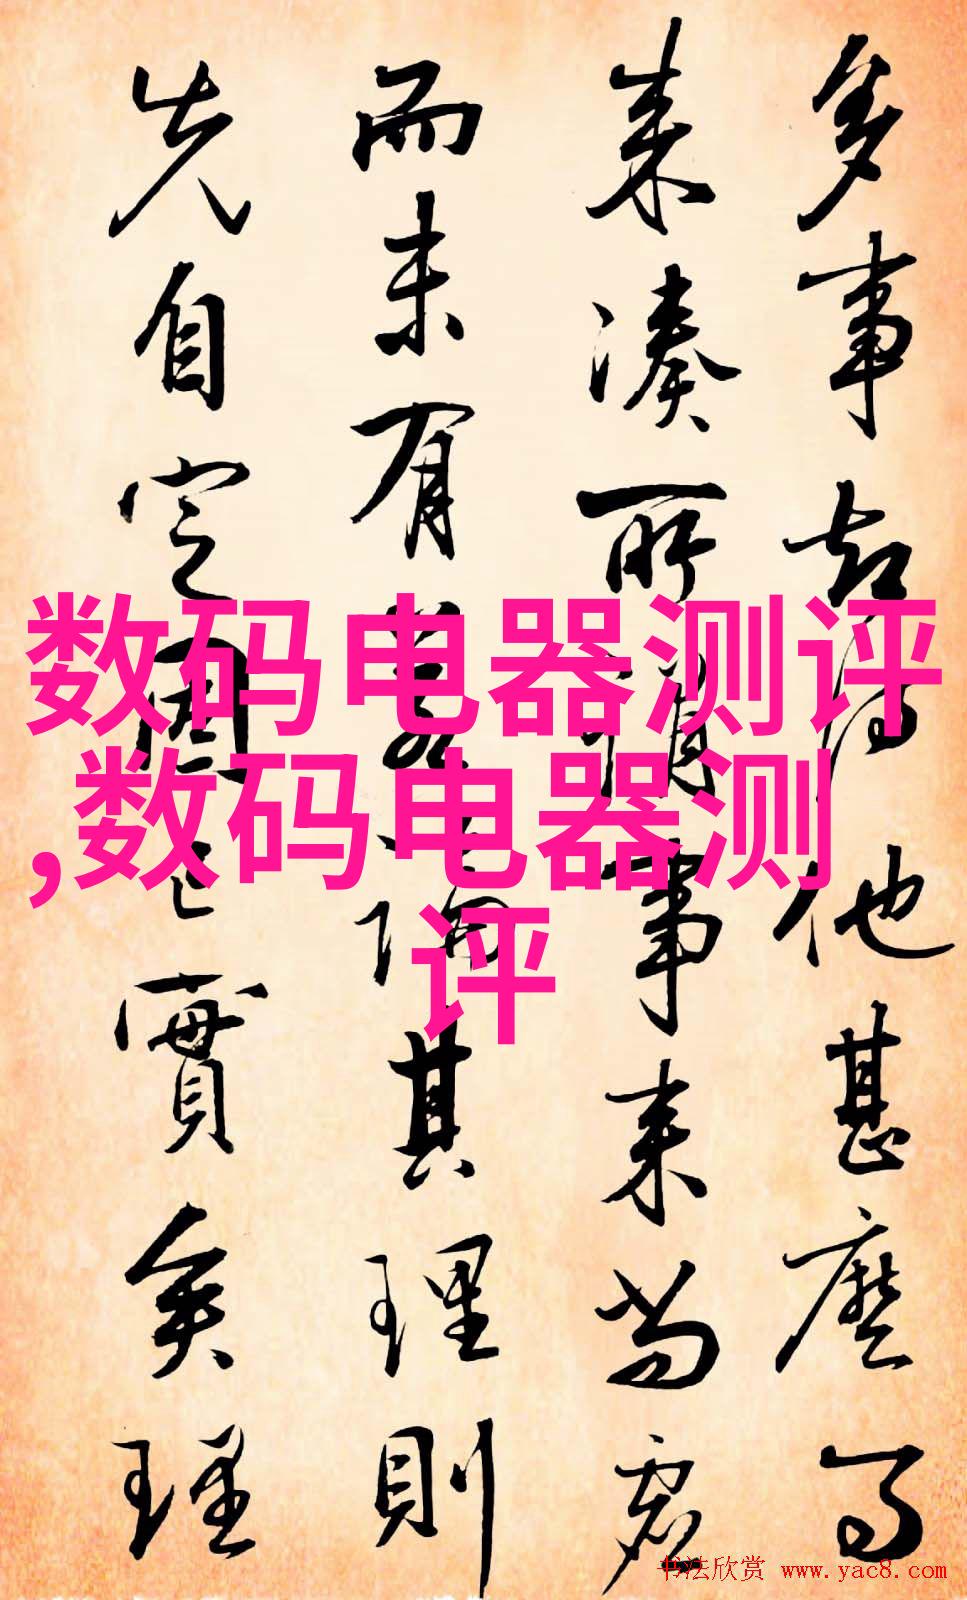 多事却得他甚麼事
来凑所謂事来尚虚
而未有若論其理則
先自定固已實矣理
数码电器测评
,数码电器测
评
书法欣赏 www.yac8.com